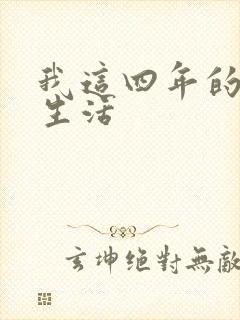 我這四年的
生活
玄坤絕對無敵